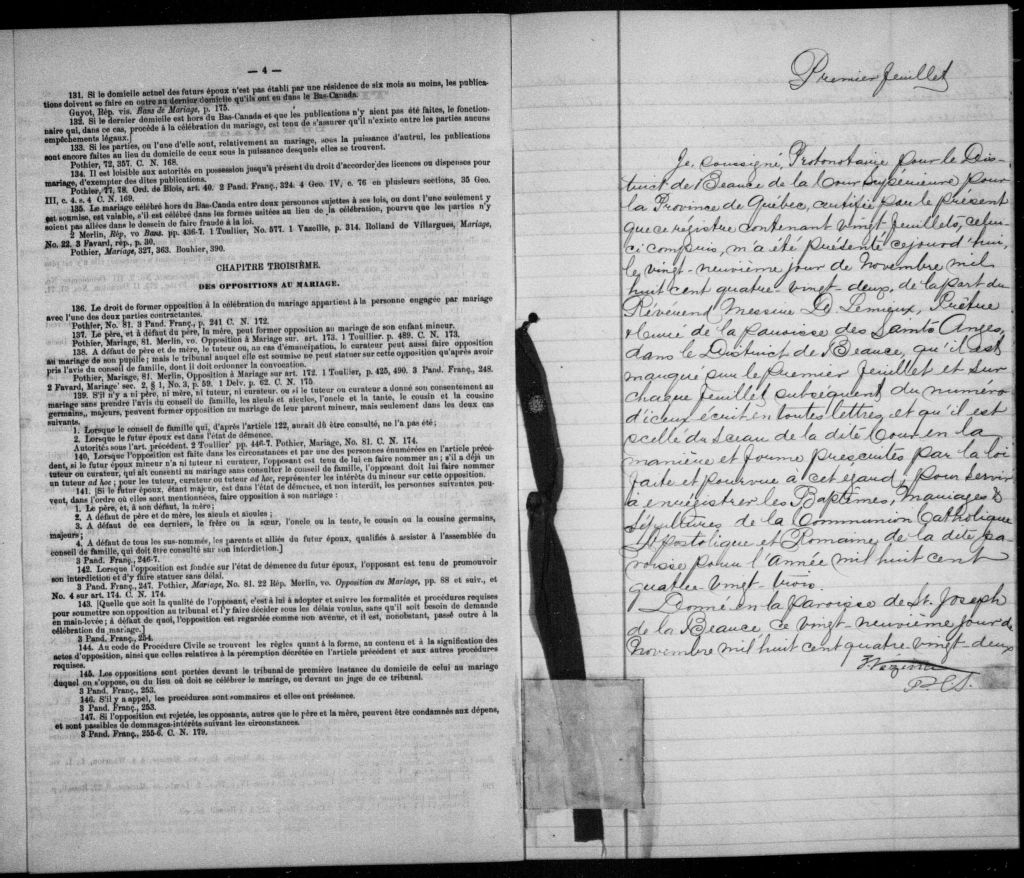 — 4 —
131. Si le domicile actuel des futurs époux n'est pas établi par une résidence de six mois au moins, les publica-
tions doivent se faire en outre au dernier domicile qu'ils ont eu dans le Bas-Canada.
Guyot, Rép. vis. Bans de Mariage, p. 175.
132. Si le dernier domicile est hors du Bas-Canada et que les publications n'y aient pas été faites, le fonction-
naire qui, dans ce cas, procède à la célébration du mariage, est tenu de s'assurer qu'il n'existe entre les parties aucuns
empêchements légaux.]
133. Si les parties, ou l'une d'elle sont, relativement au mariage, sous la puissance d'autrui, les publications
sont encore faites au lieu du domicile de ceux sous la puissance desquels elles se trouvent.
Pothier, 72, 357. C. N. 168.
134. Il est loisible aux autorités en possession jusqu'à présent du droit d'accorder des licences ou dispenses pour
mariage, d'exempter des dites publications.
Pothier, 77, 78. Ord. de Blois, art. 40. 2 Pand. Franç., 324. 4 Geo. IV, c. 76 en plusieurs sections, 35 Geo.
III, c. 4. s. 4 C. N. 169.
135. Le mariage célébré hors du Bas-Canda entre deux personnes sujettes à ses lois, ou dont l'une seulement y
est soumise, est valable, s'il est célébré dans les formes usitées au lieu de la célébration, pourvu que les parties n'y
soient pas allées dans le dessein de faire fraude à la loi.
2 Merlin, Rép, vo Bans. pp. 436-7. 1 Toullier, No. 577. 1 Vazeille, p. 314. Rolland de Villargues, Mariage,
No. 22. 3 Favard, rép., p. 30.
Pothier, Mariage, 327, 363. Bouhier, 390.
CHAPITRE TROISIÈME.
DES OPPOSITIONS AU MARIAGE.
136. Le droit de former opposition à la célébration du mariage appartient à la personne engagée par mariage
avec l'une des deux parties contractantes.
Pothier, No. 81. 3 Pand. Franç., p. 241 C. N. 172.
137. Le père, et à défaut du père, la mère, peut former opposition au mariage de son enfant mineur.
Pothier, Mariage, 81. Merlin, vo. Opposition à Mariage sur. art. 173. 1 Touillier. p. 489. C. N. 173.
138. A défaut de père et de mère, le tuteur ou, au cas d'émancipation, le curateur peut aussi faire opposition
au mariage de son pupille; mais le tribunal auquel elle est soumise ne peut statuer sur cette opposition qu'après avoir
pris l'avis du conseil de famille, dont il doit ordonner la convocation.
Pothier, Mariage, 81. Merlin, Opposition à Mariage sur art. 172. 1 Toulier, p. 425, 490. 3 Pand. Franç., 248.
2 Favard, Mariage: sec. 2, § 1, No. 3, p. 59. 1 Delv. p. 62. C. N. 175.
139. S'il n'y a ni père, ni mère, ni tuteur, ni curateur, ou si le tuteur ou curateur a donné son consentement au
mariage sans prendre l'avis du conseil de famille, les aïeuls et aïeules, l'oncle et la tante, le cousin et la cousine
germains, majeurs, peuvent former opposition au mariage de leur parent mineur, mais seulement dans les deux cas
suivants.
1. Lorsque le conseil de famille qui, d'après l'article 122, aurait dû être consulté, ne l'a pas été;
2. Lorsque le futur époux est dans l'état de démence.
Autorités sous l'art. précédent. 2 Toullier pp. 446-7. Pothier, Mariage, No. 81. C. N. 174.
140. Lorsque l'opposition est faite dans les circonstances et par une des personnes énumérées en l'article précé-
dent, si le futur époux mineur n'a ni tuteur ni curateur, l'opposant est tenu de lui en faire nommer un; s'il a déjà un
tuteur ou curateur, qui ait consenti au mariage sans consulter le conseil de famille, l'opposant doit lui faire nommer
un tuteur ad hoc; pour les tuteur, curateur ou tuteur ad hoc, représenter les intérêts du mineur sur cette opposition.
141. [Si le futur époux, étant majeur, est dans l'état de démence, et non interdit, les personnes suivantes peu-
vent, dans l'ordre où elles sont mentionnées, faire opposition à son mariage:
1. Le père, et, à son défaut, la mère;
2. A défaut de père et de mère, les aïeuls et aïeules;
3. A défaut de ces derniers, le frère ou la sœur, l'oncle ou la tente, le cousin ou la cousine germains,
majeurs;
4. A défaut de tous les sus-nommés, les parents et alliés du futur époux, qualifiés à assister à l'assemblée du
conseil de famille, qui doit être consulté sur son interdiction.]
3 Pand. Franç., 246-7.
142. Lorsque l'opposition est fondée sur l'état de démence du futur époux, l'opposant est tenu de promouvoir
son interdiction et d'y faire statuer sans délai.
3 Pand. Franç., 247. Pothier, Mariage, No. 81. 22 Rép. Merlin, vo. Opposition au Mariage, pp. 88 et suiv., et
No. 4 sur art. 174. C. N. 174.
143. [Quelle que soit la qualité de l'opposant, c'est à lui à adopter et suivre les formalités et procédures requises
pour soumettre son opposition au tribunal et l'y faire décider sous les délais voulus, sans qu'il soit besoin de demande
en main-levée; à défaut de quoi, l'opposition est regardée comme non avenue, et il est, nonobstant, passé outre à la
célébration du mariage.]
3 Pand. Franç., 254.
144. Au code de Procédure Civile se trouvent les règles quant à la forme, au contenu et à la signification des
actes d'opposition, ainsi que celles relatives à la péremption décrétée en l'article précédent et aux autres procédures
requises.
145. Les oppositions sont portées devant le tribunal de première instance du domicile de celui au mariage
duquel on s'oppose, ou du lieu où doit se célébrer le mariage, ou devant un juge de ce tribunal.
3 Pand. Franç., 253.
146. S'il y a appel, les procédures sont sommaires et elles ont présence.
3 Pand. Franç., 253.
147. Si l'opposition est rejetée, les opposants, autres que le père et la mère, peuvent être condamnés aux dépens,
et sont passibles de dommages-intérêts suivant les circonstances.
3 Pand. Franç., 255-6. C. N. 179.
Premier feuillet
Je, soussigné, Protonotaire pour le Dis-
trict de Beauce de la Cour supérieure pour
la Province de Québec, certifie par le présent
que ce régistre contenant vingt feuillets, celui-
ci compris, m'a été présenté ce jourd'hui,
le vingt-neuvième jour de Novembre mil
huit cent quatre-vingt-deux, de la part du
Révérend Messire D. Lemieux, Prêtre
Curé de la paroisse des Saints Anges,
dans le District de Beauce, qu'il est
marqué sur le Premier feuillet et sur
chaque feuillet subséquent du numéro
d'iceux écrit en toutes lettres, et qu'il est
scellé du Sceau de la dite Cour en la
manière et forme prescrites par la loi
faite et pourvue à cet égard, pour servir
à enregistrer les Baptêmes, Mariages &
Sépultures de la Communion Catholique
Apostolique et Romaine, de la dite pa-
roisse pour l'Année mil huit cent
quatre-vingt-trois.
Donné en la paroisse de St. Joseph
de la Beauce ce vingt-neuvième jour de
Novembre mil huit cent quatre-vingt-deux
P.C.S.